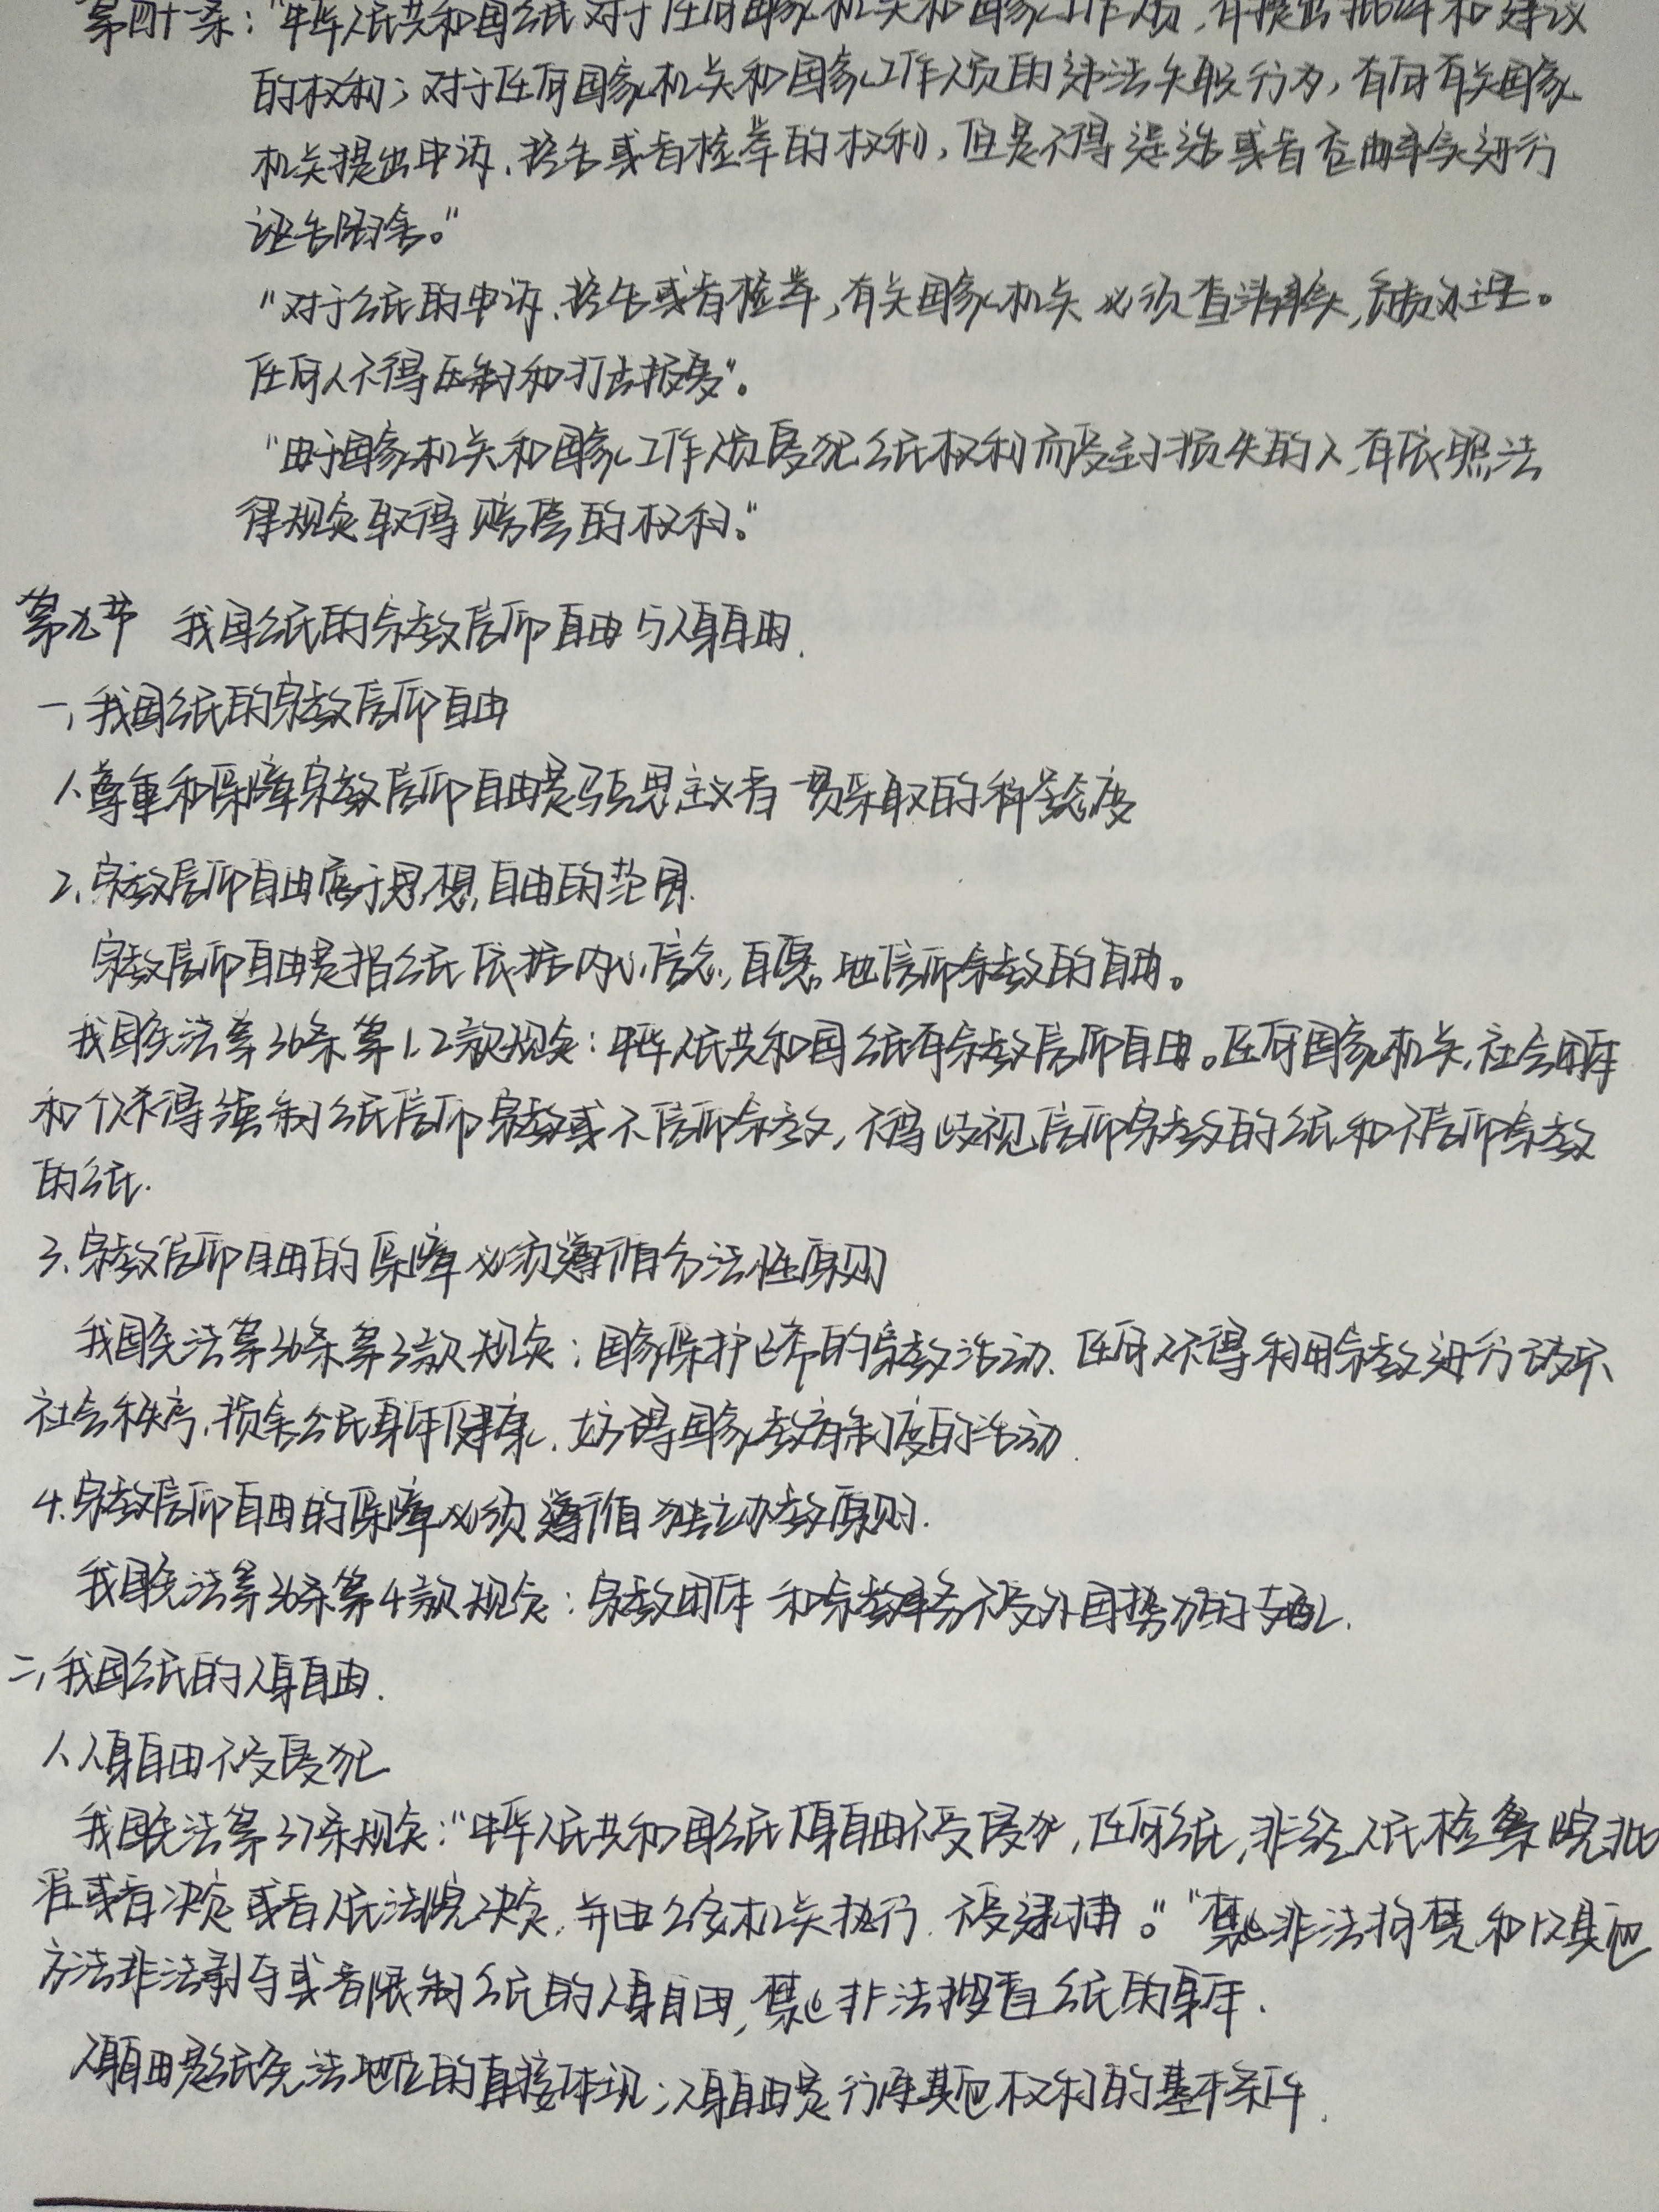 第四十一条:"中华人民共和国公民对于任何国家机关和国家工作人员,有提出批评和建议
的权利;对于任何国家机关和国家工作人员的违法失职行为,有向有关国家
机关提出申诉、控告或者检举的权利,但是不得捏造或者歪曲事实进行
诬告陷害。"
"对于公民的申诉、控告或者检举,有关国家机关必须查清事实,负责处理。
任何人不得压制和打击报复"。
"由于国家机关和国家工作人员侵犯公民权利而受到损失的人,有依照法
律规定取得赔偿的权利。"
第九节 我国公民的宗教信仰自由与人身自由.
一、我国公民的宗教信仰自由
1、尊重和保障宗教信仰自由是马克思主义者一贯采取的科学态度
2、宗教信仰自由属于思想自由的范围.
宗教信仰自由是指公民依据内心信念,自愿地信仰宗教的自由。
我国宪法第36条第1、2款规定:中华人民共和国公民有宗教信仰自由。任何国家机关、社会团体
和个人不得强制公民信仰宗教或不信仰宗教,不得歧视信仰宗教的公民和不信仰宗教
的公民.
3、宗教信仰自由的保障必须遵循合法性原则
我国宪法第36条第3款规定:国家保护正常的宗教活动.任何人不得利用宗教进行破坏
社会秩序、损害公民身体健康、妨碍国家教育制度的活动.
4.宗教信仰自由的保障必须遵循独立办教原则.
我国宪法第36条第4款规定:宗教团体和宗教事务不受外国势力的支配.
二、我国公民的人身自由.
1、人身自由不受侵犯
我国宪法第37条规定:"中华人民共和国公民人身自由不受侵犯,任何公民,非经人民检察院批
准或者决定或者人民法院决定,并由公安机关执行,不受逮捕。""禁止非法拘禁和以其他
方法非法剥夺或者限制公民的人身自由,禁止非法搜查公民的身体.
人身自由是公民宪法地位的直接体现;人身自由是行使其他权利的基本条件.